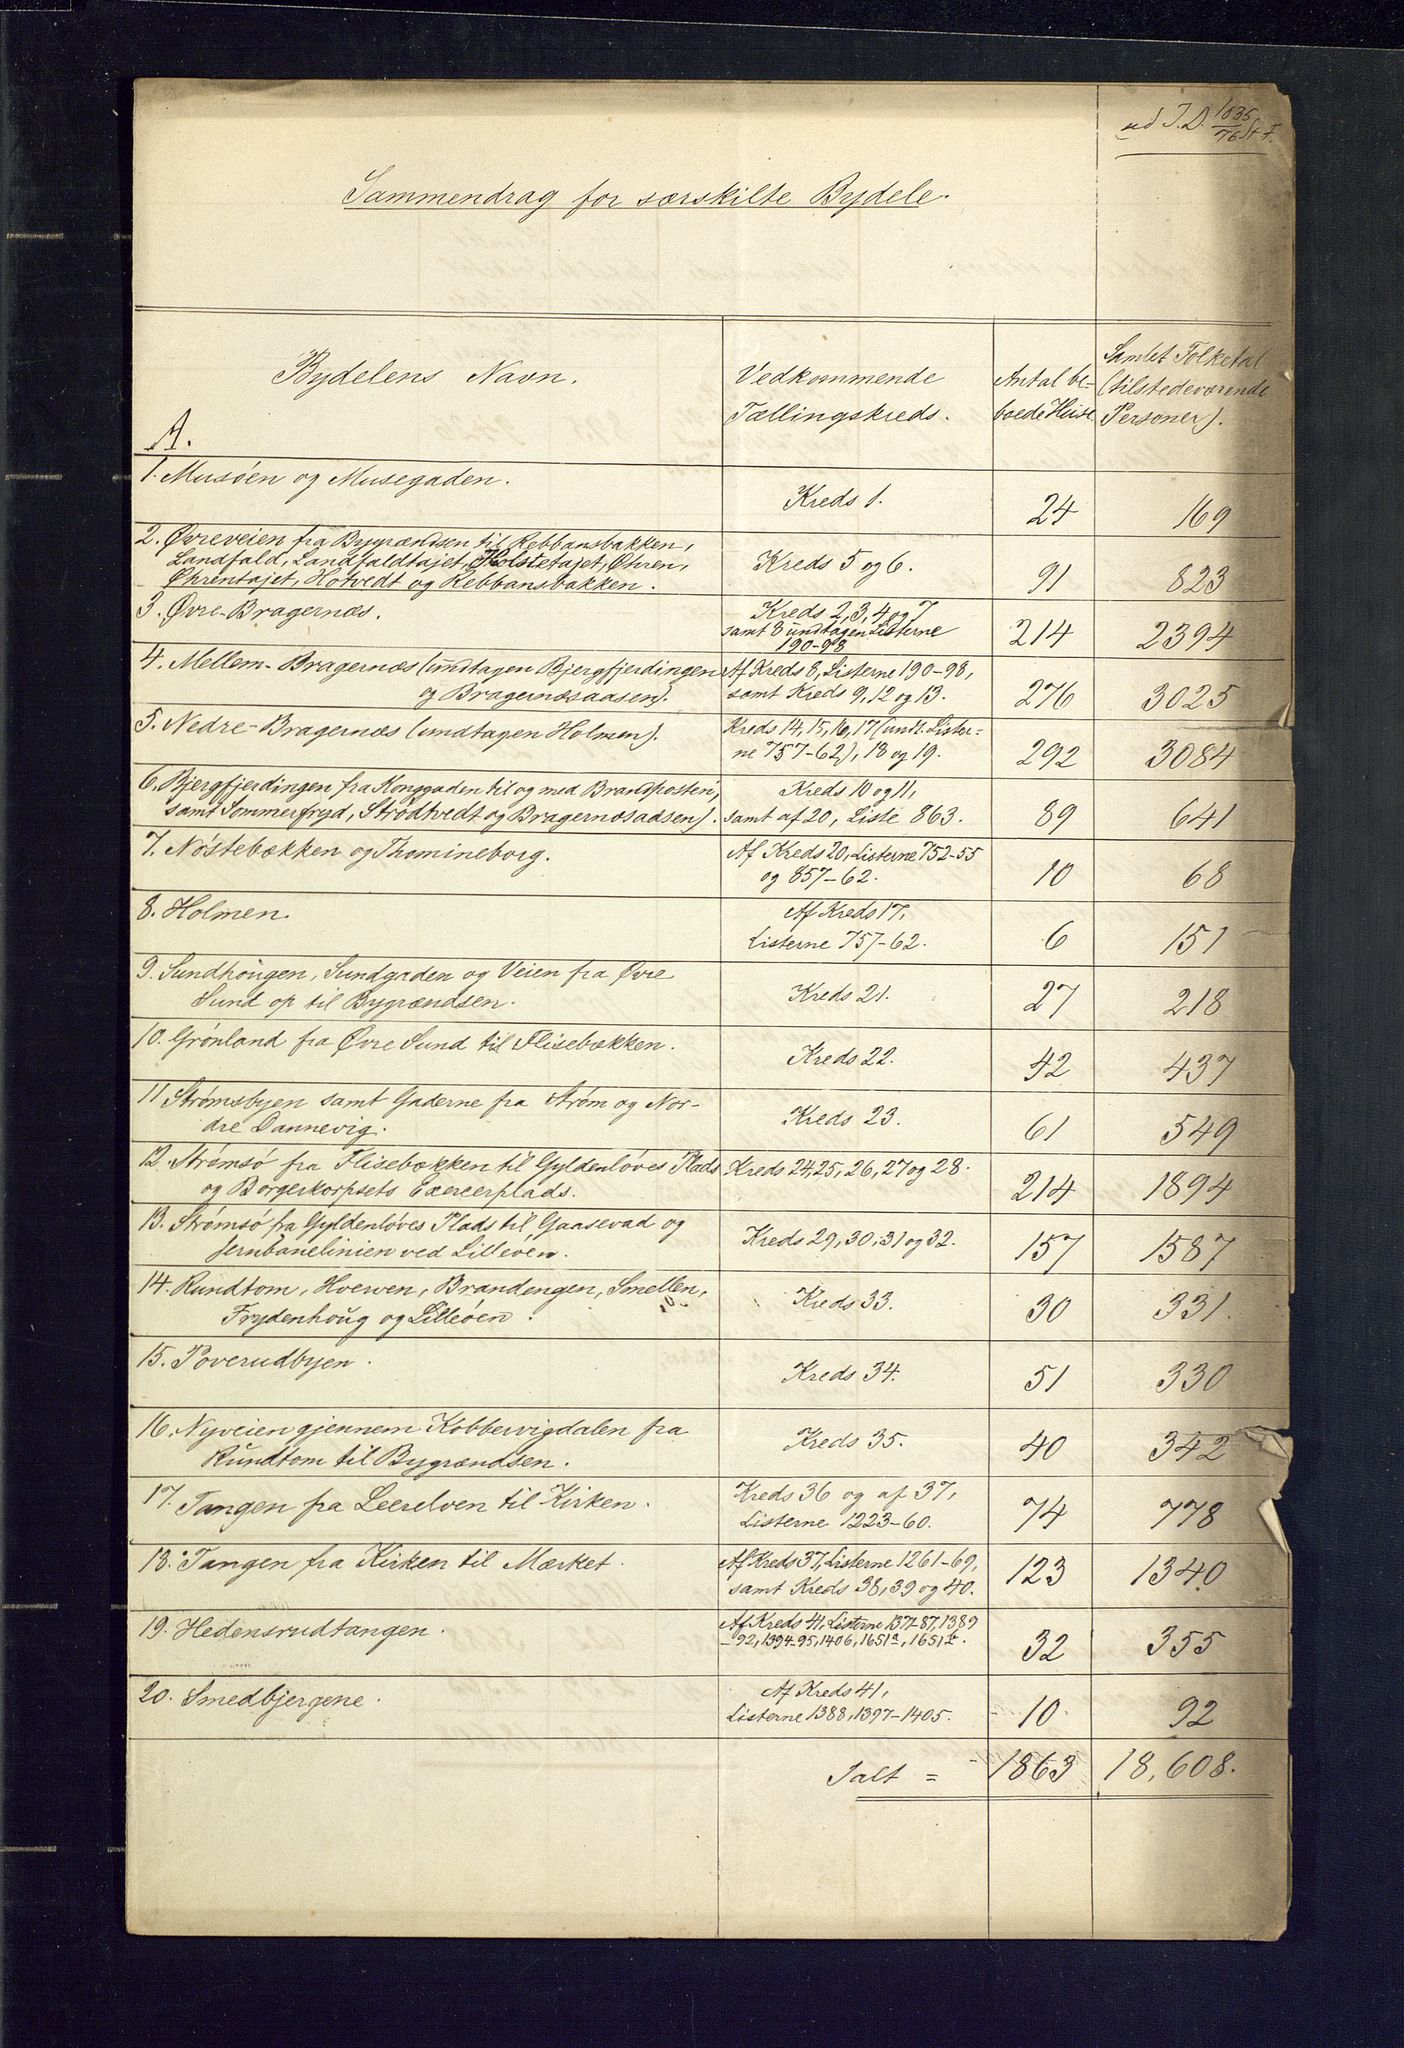 ad J.D. 1035/76 St. F.
Sammendrag for særskilte Bydele.
Bydelens Navn.
Vedkommende
Tællingskreds.
Antal be-
boede Huse.
Samlet Folketal
(tilstedeværende
Personer).
A.
1. Musøen og Musegaden.
Kreds 1.
24
169
2. Øvreveien fra Bygrændsen til Rebbansbakken,
Landfald, Landfaldtajet, Holstetajet, Øhren,
Øhrentajet, Hotvedt og Rebbansbakken.
Kreds 5 og 6.
91
823
3. Øvre-Bragernæs.
Kreds 2, 3, 4 og 7
samt 8 undtagen Listerne
190-98
214
2394
4. Mellem-Bragernæs (undtagen Bjergfjerdingen
og Bragernæsaasen).
Af Kreds 8, Listerne 190-98,
samt Kreds 9, 12 og 13.
276
3025
5. Nedre-Bragernæs (undtagen Holmen).
Kreds 14, 15, 16, 17 (undt. Lister-
ne 757-62), 18 og 19.
292
3084
6. Bjergfjerdingen fra Konggaden til og med Brandposten,
samt Sommerfryd, Strødtvedt og Bragernæsaasen).
Kreds 10 og 11,
samt af 20, Liste 863.
89
641
7. Nøstebækken og Thomineborg.
Af Kreds 20, Listerne 752-55
og 857-62.
10
68
8. Holmen.
Af Kreds 17,
Listerne 757-62.
6
151
9. Sundhougen, Sundgaden og Veien fra Øvre
Sund op til Bygrændsen.
Kreds 21.
27
218
10. Grønland fra Øvre Sund til Flisebækken.
Kreds 22.
42
437
11 Strømsbyen samt Gaderne fra Strøm og Nor-
dre Dannevig.
Kreds 23.
61
549
12. Strømsø fra Flisebækken til Gyldenløves Plads
og Borgerkorpsets Exercerplads.
Kreds 24, 25, 26, 27 og 28.
214
1894
13. Strømsø fra Gyldenløves Plads til Gaasevad og
Jernbanelinien ved Lilleøen.
Kreds 29, 30, 31 og 32.
157
1587
14. Rundtom, Hverven, Brandengen, Smellen,
Frydenhoug og Lilleøen.
Kreds 33.
30
331.
15. Poverudbyen.
Kreds 34.
51
330
16. Nyveien gjennem Kobbervigdalen fra
Rundtom til Bygrændsen.
Kreds 35.
40
342
17. Tangen fra Leerelven til Kirken.
Kreds 36 og af 37,
Listerne 1223-60.
74
778
18. Tangen fra Kirken til Mærket.
Af Kreds 37, Listerne 1261-69,
samt Kreds 38, 39 og 40.
123
1340
19. Hedensrudtangen.
Af Kreds 41, Listerne 1371-87, 1389
-92, 1394-95, 1406, 1651a, 1651b.
32
355
20. Smedbjergene.
Af Kreds 41,
Listerne 1388, 1397-1405.
10
92
Ialt = 1863 18,608.